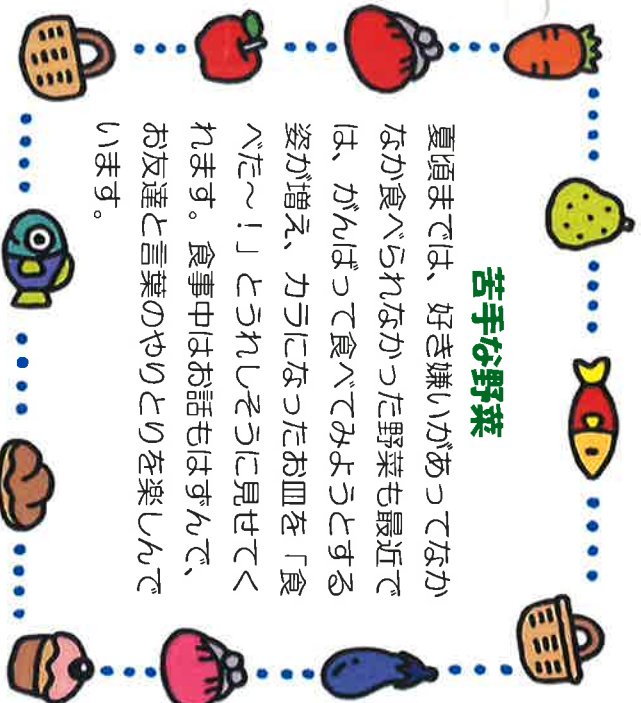 苦手な野菜
夏頃までは、好き嫌いがあってなか
なか食べられなかった野菜も最近で
は、がんばって食べてみようとする
姿が増え、カラになったお皿を「食
べた～！」とうれしそうに見せてく
れます。食事中はお話もはずんで、
お友達と言葉のやりとりを楽しんで
います。